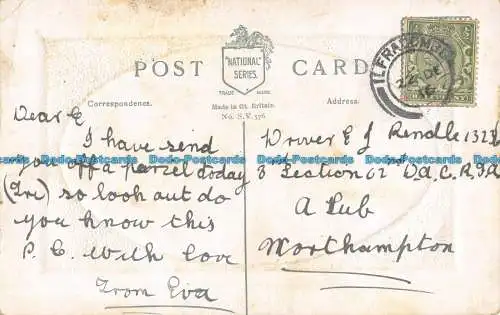 POST CARD
"NATIONAL"
SERIES.
TRADE MARK.
Correspondence.
Made in Gt. Britain.
No. S.V. 376
Address.
ILFRACOMBE
DE
Dear E
I have send
you off a parzel today
(Fri) so look out do
you know this
P.C. With love
From Eva
Driver E J Rendle 132
3 Section 62 D.A.C. R.F.A
A Sub
Northampton
Dodo-Postcards Dodo-Postcards Dodo-Postcards Dodo-Postcards